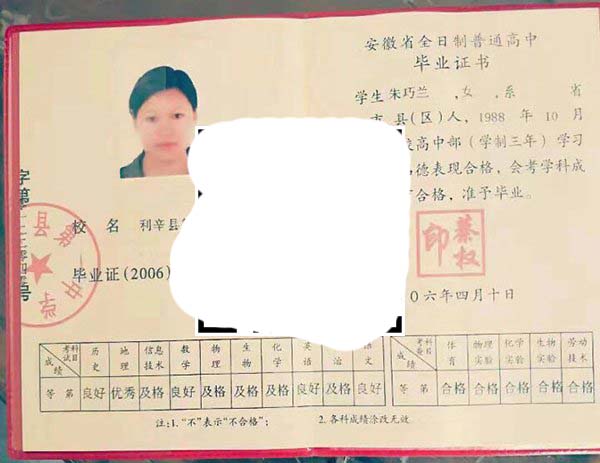 安徽省全日制普通高中
毕业证书
学生 朱巧兰 ,女 ,系 省
市 县(区)人, 1988 年 10 月
校高中部(学制三年)学习
德表现合格,会考学科成
合格,准予毕业。
校 名 利辛县
毕业证(2006)
蔡权印
〇六年四月十日
县第
一中学
考试科目 历史 地理 信息技术 数学 物理 生物 化学 英语 治 语文
成绩 等第 良好 优秀 及格 良好 及格 及格 及格 良好 及格 良好
考查科目 体育 物理实验 化学实验 生物实验 劳动技术
成绩 等第 合格 合格 合格 合格 合格
注:1. "不"表示"不合格"; 2. 各科成绩涂改无效.